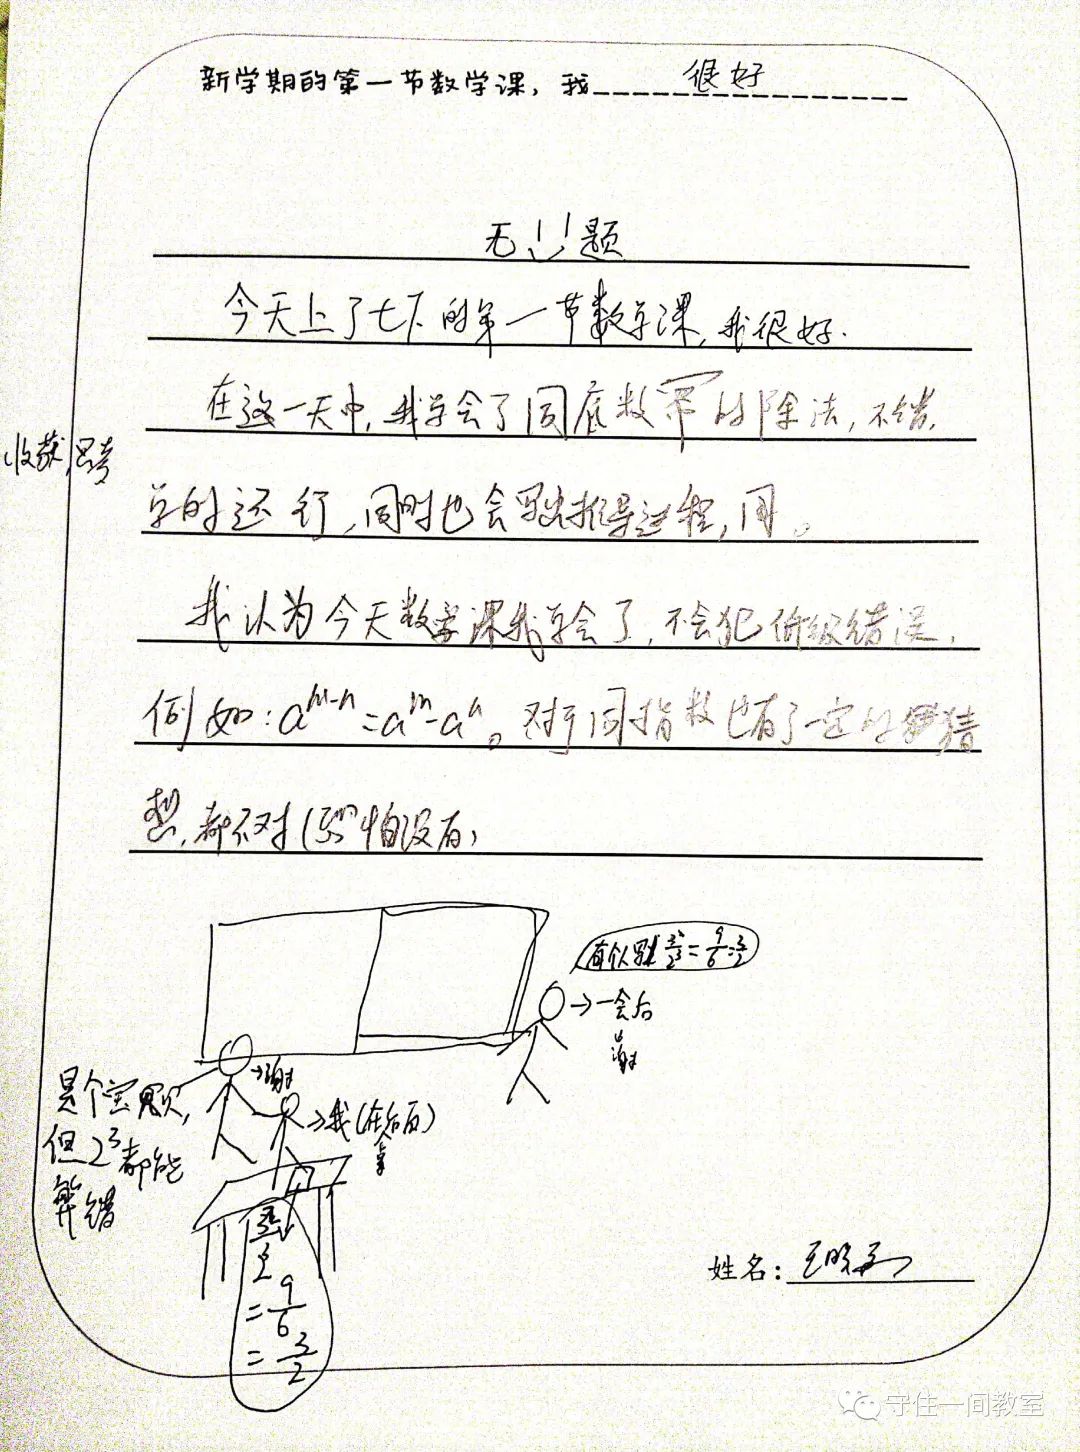 新学期的第一节数学课，我很好
无题
今天上了七下的第一节数学课，我很好.
在这一天中，我学会了同底数幂的除法，不错，
收获，思考
学的还行，同时也会写出推导过程，同。
我认为今天数学课我学会了，不会犯低级错误，
例如：a^{m-n}=a^m-a^n。对于同指数也有了一定的猜
想，都不对（恐怕没有）
有个人写成 = 9/6 = 3/2
→一会后
→谢
谢
是个宝贝，
→我（在后面）
但2³都能
算错
= 9/6
= 3/2
姓名：王晓
守住一间教室